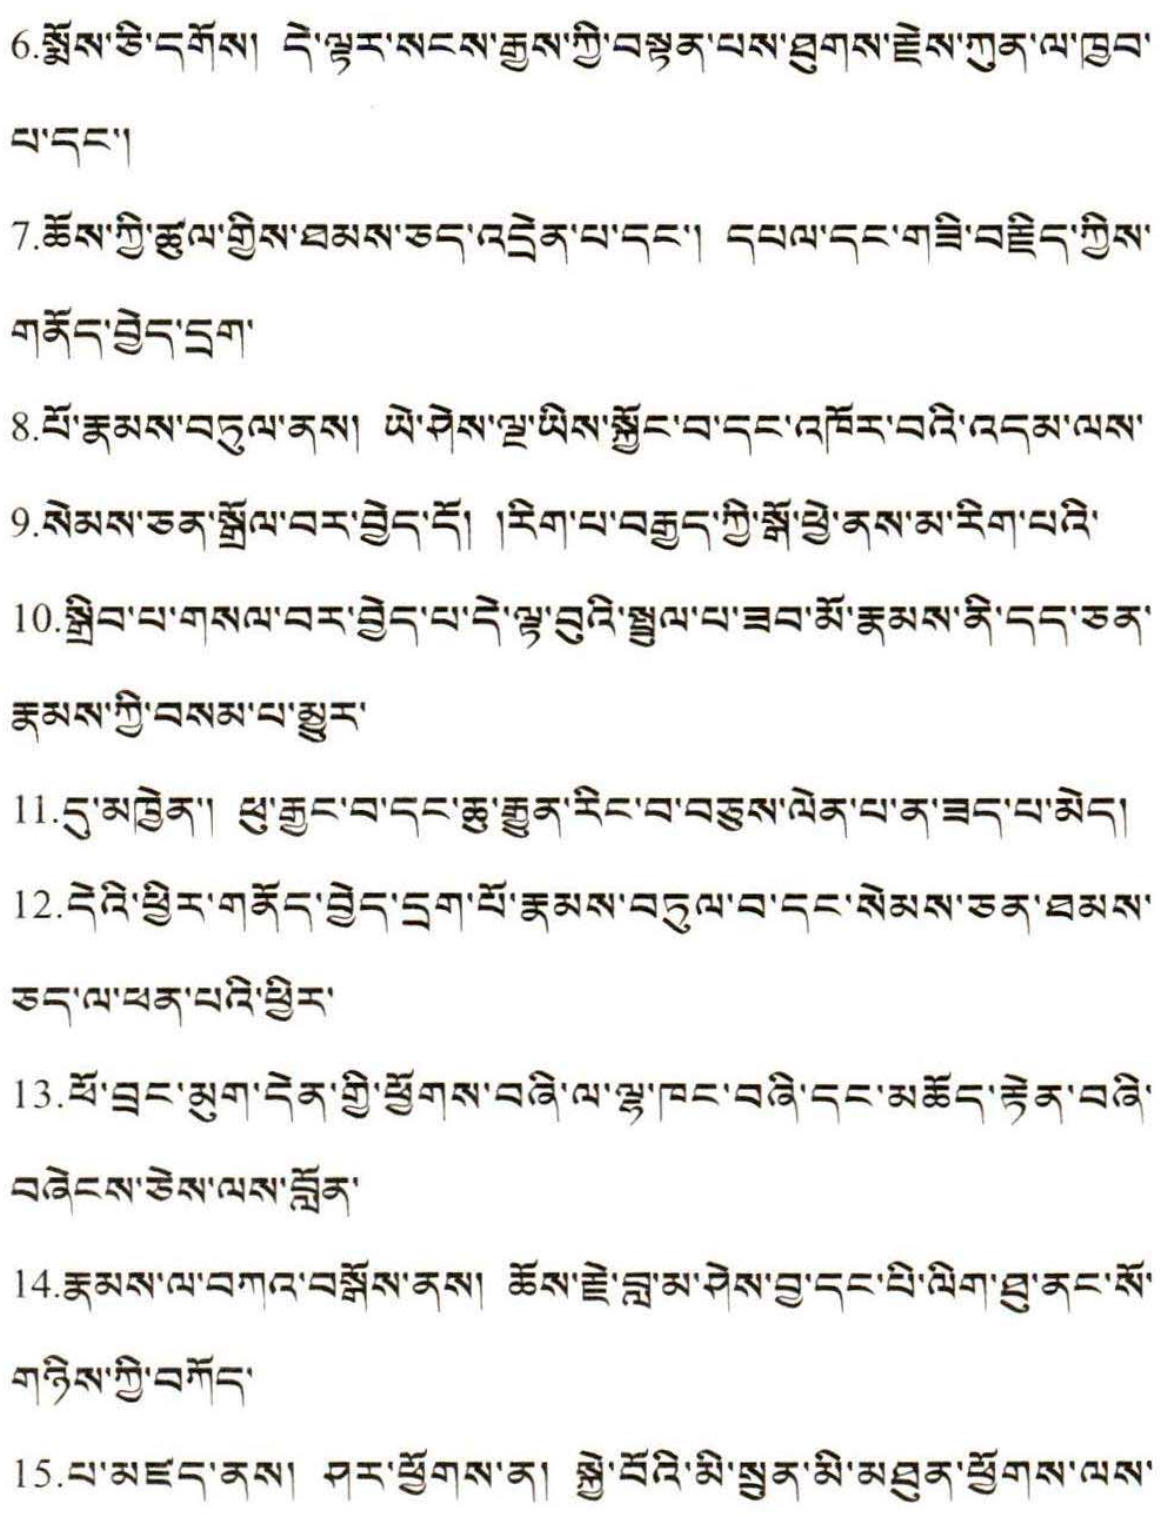 6.སྨོས་ཅི་དགོས། དེ་ལྟར་སངས་རྒྱས་ཀྱི་བསྟན་པས་ཐུགས་རྗེས་ཀུན་ལ་ཁྱབ་
པ་དང་།
7.ཆོས་ཀྱི་ཚུལ་གྱིས་ཐམས་ཅད་འདྲེན་པ་དང་། དཔལ་དང་གཟི་བརྗིད་ཀྱིས་
གནོད་བྱེད་དྲག་
8.པོ་རྣམས་བཏུལ་ནས། ཡེ་ཤེས་ལྔ་ཡིས་སྐྱོང་བ་དང་འཁོར་བའི་འདམ་ལས་
9.སེམས་ཅན་སྒྲོལ་བར་བྱེད་དོ། །རིག་པ་བརྒྱད་ཀྱི་སྒོ་ཕྱེ་ནས་མ་རིག་པའི་
10.སྒྲིབ་པ་གསལ་བར་བྱེད་པ་དེ་ལྟ་བུའི་སྤྲུལ་པ་ཟབ་མོ་རྣམས་ནི་དད་ཅན་
རྣམས་ཀྱི་བསམ་པ་མྱུར་
11.དུ་མཁྱེན་། ཕུ་རྒྱང་བ་དང་ཆུ་རྒྱུན་རིང་བ་བཅུས་ལེན་པ་ན་ཟད་པ་མེད།
12.དེའི་ཕྱིར་གནོད་བྱེད་དྲག་པོ་རྣམས་བཏུལ་བ་དང་སེམས་ཅན་ཐམས་
ཅད་ལ་ཕན་པའི་ཕྱིར་
13.ཕོ་བྲང་མུག་དེན་གྱི་ཕྱོགས་བཞི་ལ་ལྷ་ཁང་བཞི་དང་མཆོད་རྟེན་བཞི་
བཞེངས་ཅེས་ལས་བློན་
14.རྣམས་ལ་བཀའ་བསྒོས་ནས། ཆོས་རྗེ་བླ་མ་ཤེས་བྱ་དང་པི་ལིག་ཐུ་ནང་སོ་
གཉིས་ཀྱི་བཀོད་
15.པ་མཛད་ནས། ཤར་ཕྱོགས་ན། སྐྱེ་བོའི་མི་སྲུན་མི་མཐུན་ཕྱོགས་ལས་